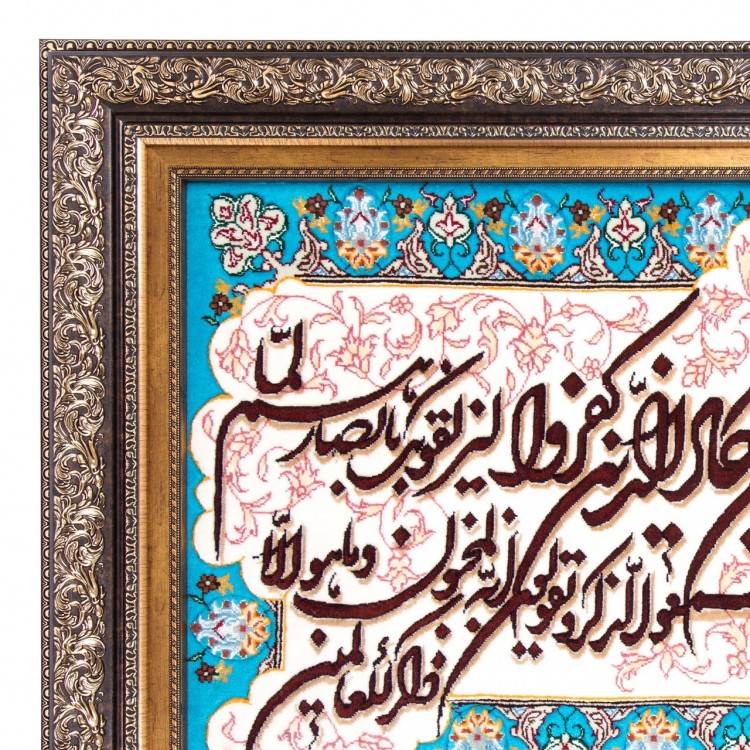 کاد الذین کفروا لیزلقونک بابصارهم لما
سمعوا الذکر و یقولون انه لمجنون و ما هو الا
ذکر للعالمین